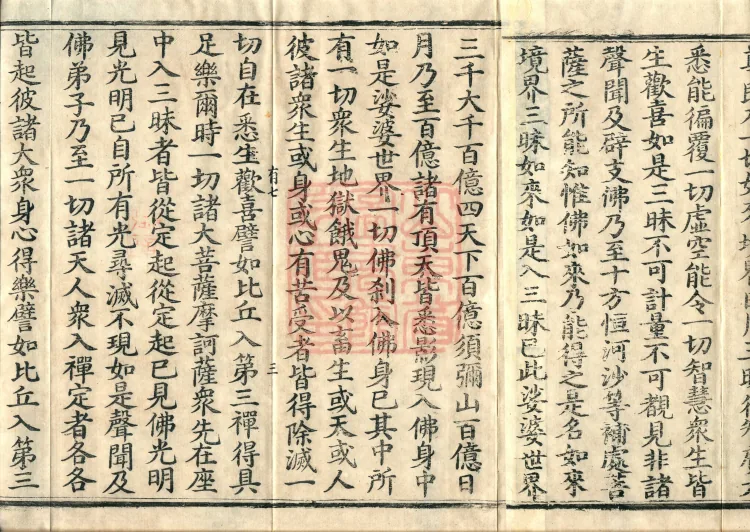 悉能徧覆一切虛空能令一切智慧衆生皆
生歡喜如是三昧不可計量不可覩見非諸
聲聞及辟支沸乃至十方恒河沙等補處菩
薩之所能知惟佛如來乃能得之是名如來
境界三昧如來如是入三昧已此娑婆世界
三千大千百億四天下百億須彌山百億日
月乃至百億諸有頂天皆悉影現入佛身中
如是娑婆世界一切佛刹入佛身已其中所
有一切衆生地獄餓鬼及以畜生或天或人
彼諸衆生或身或心有苦受者皆得除滅一
有七
三
切自在悉生歡喜譬如比丘入第三禪得具
足樂爾時一切諸大菩薩摩訶薩衆先在座
中入三昧者皆從定起從定起已見佛光明
見光明已自所有光尋滅不現如是聲聞及
佛弟子乃至一切諸天人衆入禪定者各各
皆起彼諸大衆身心得樂譬如比丘入第三